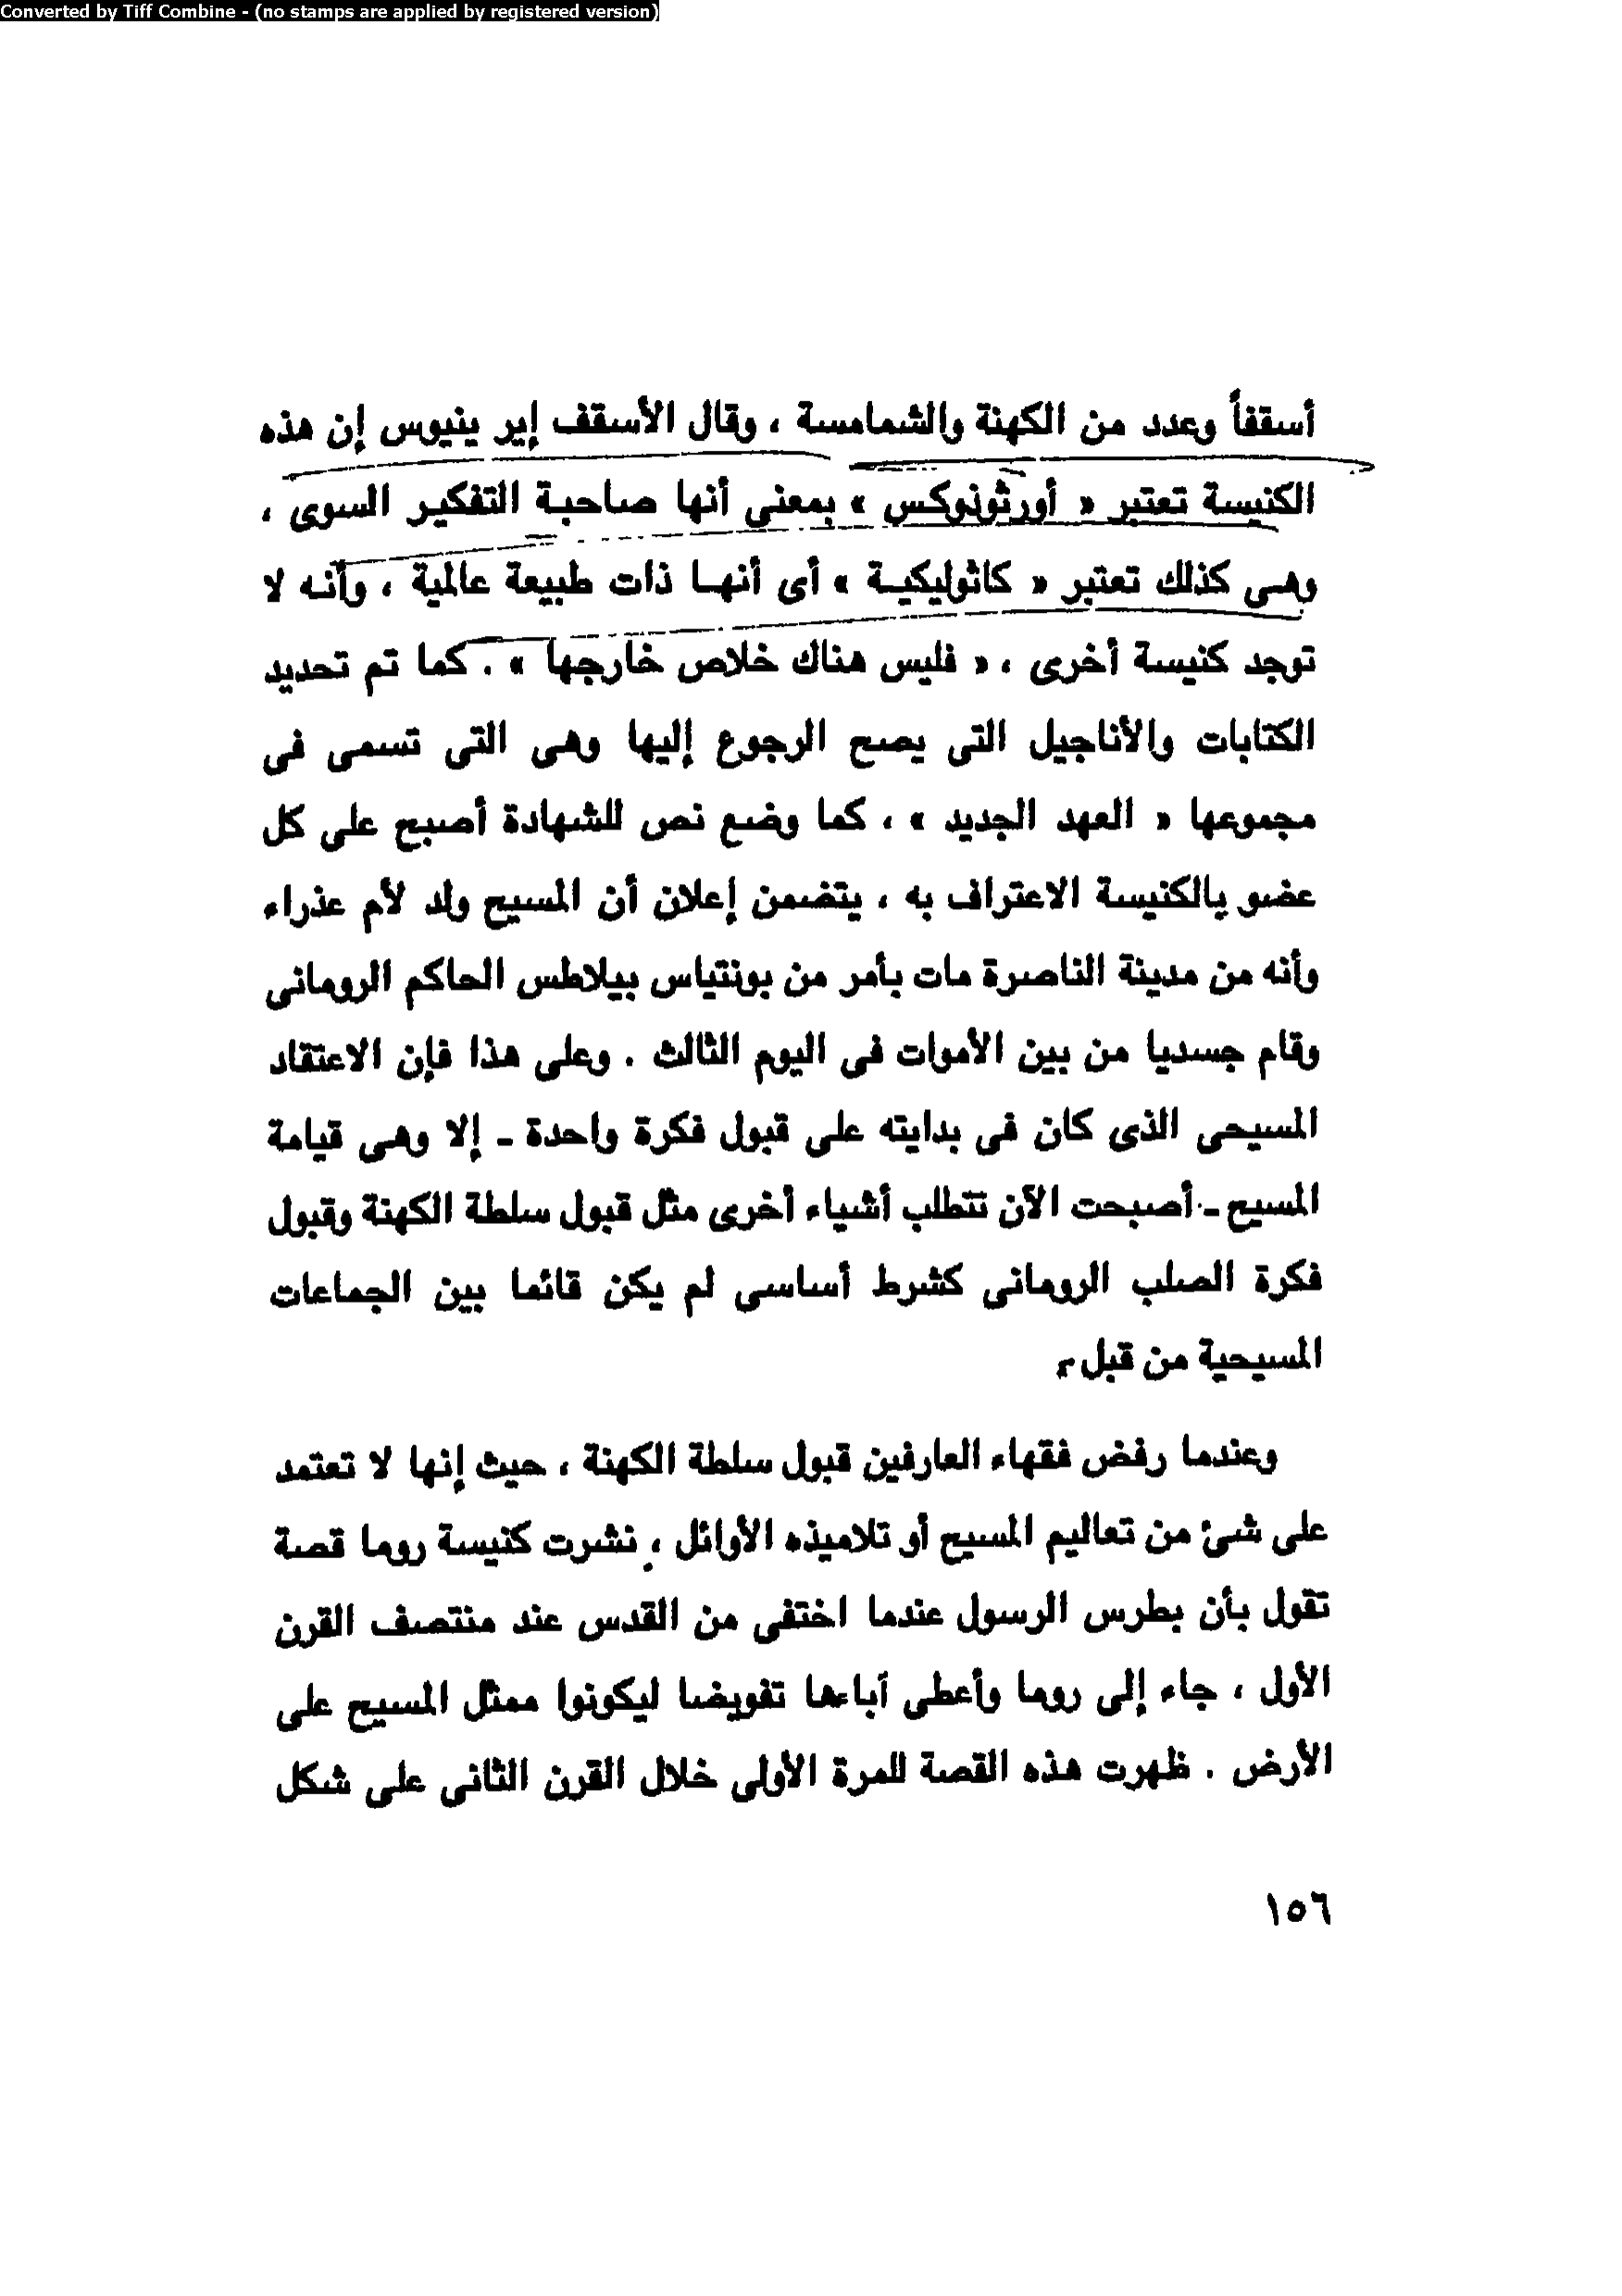 Converted by Tiff Combine - (no stamps are applied by registered version)
أسقفاً وعدد من الكهنة والشمامسة ، وقال الأسقف إير ينيوس إن هذه
الكنيسة تعتبر « أورثوذوكس » بمعنى أنها صاحبة التفكير السوى ،
وهى كذلك تعتبر « كاثوليكية » أى أنها ذات طبيعة عالمية ، وأنه لا
توجد كنيسة أخرى ، « فليس هناك خلاص خارجها » . كما تم تحديد
الكتابات والأناجيل التى يصح الرجوع إليها وهى التى تسمى فى
مجموعها « العهد الجديد » ، كما وضع نص للشهادة أصبح على كل
عضو بالكنيسة الاعتراف به ، يتضمن إعلان أن المسيح ولد لأم عذراء
وأنه من مدينة الناصرة مات بأمر من بونتياس بيلاطس الحاكم الرومانى
وقام جسديا من بين الأموات فى اليوم الثالث . وعلى هذا فإن الاعتقاد
المسيحى الذى كان فى بدايته على قبول فكرة واحدة ـ إلا وهى قيامة
المسيح ـ أصبحت الآن تتطلب أشياء أخرى مثل قبول سلطة الكهنة وقبول
فكرة الصلب الرومانى كشرط أساسى لم يكن قائما بين الجماعات
المسيحية من قبل .
وعندما رفض فقهاء العارفين قبول سلطة الكهنة ، حيث إنها لا تعتمد
على شئ من تعاليم المسيح أو تلاميذه الأوائل ، نشرت كنيسة روما قصة
تقول بأن بطرس الرسول عندما اختفى من القدس عند منتصف القرن
الأول ، جاء إلى روما وأعطى آباءها تفويضا ليكونوا ممثل المسيح على
الأرض . ظهرت هذه القصة للمرة الأولى خلال القرن الثانى على شكل
١٥٦